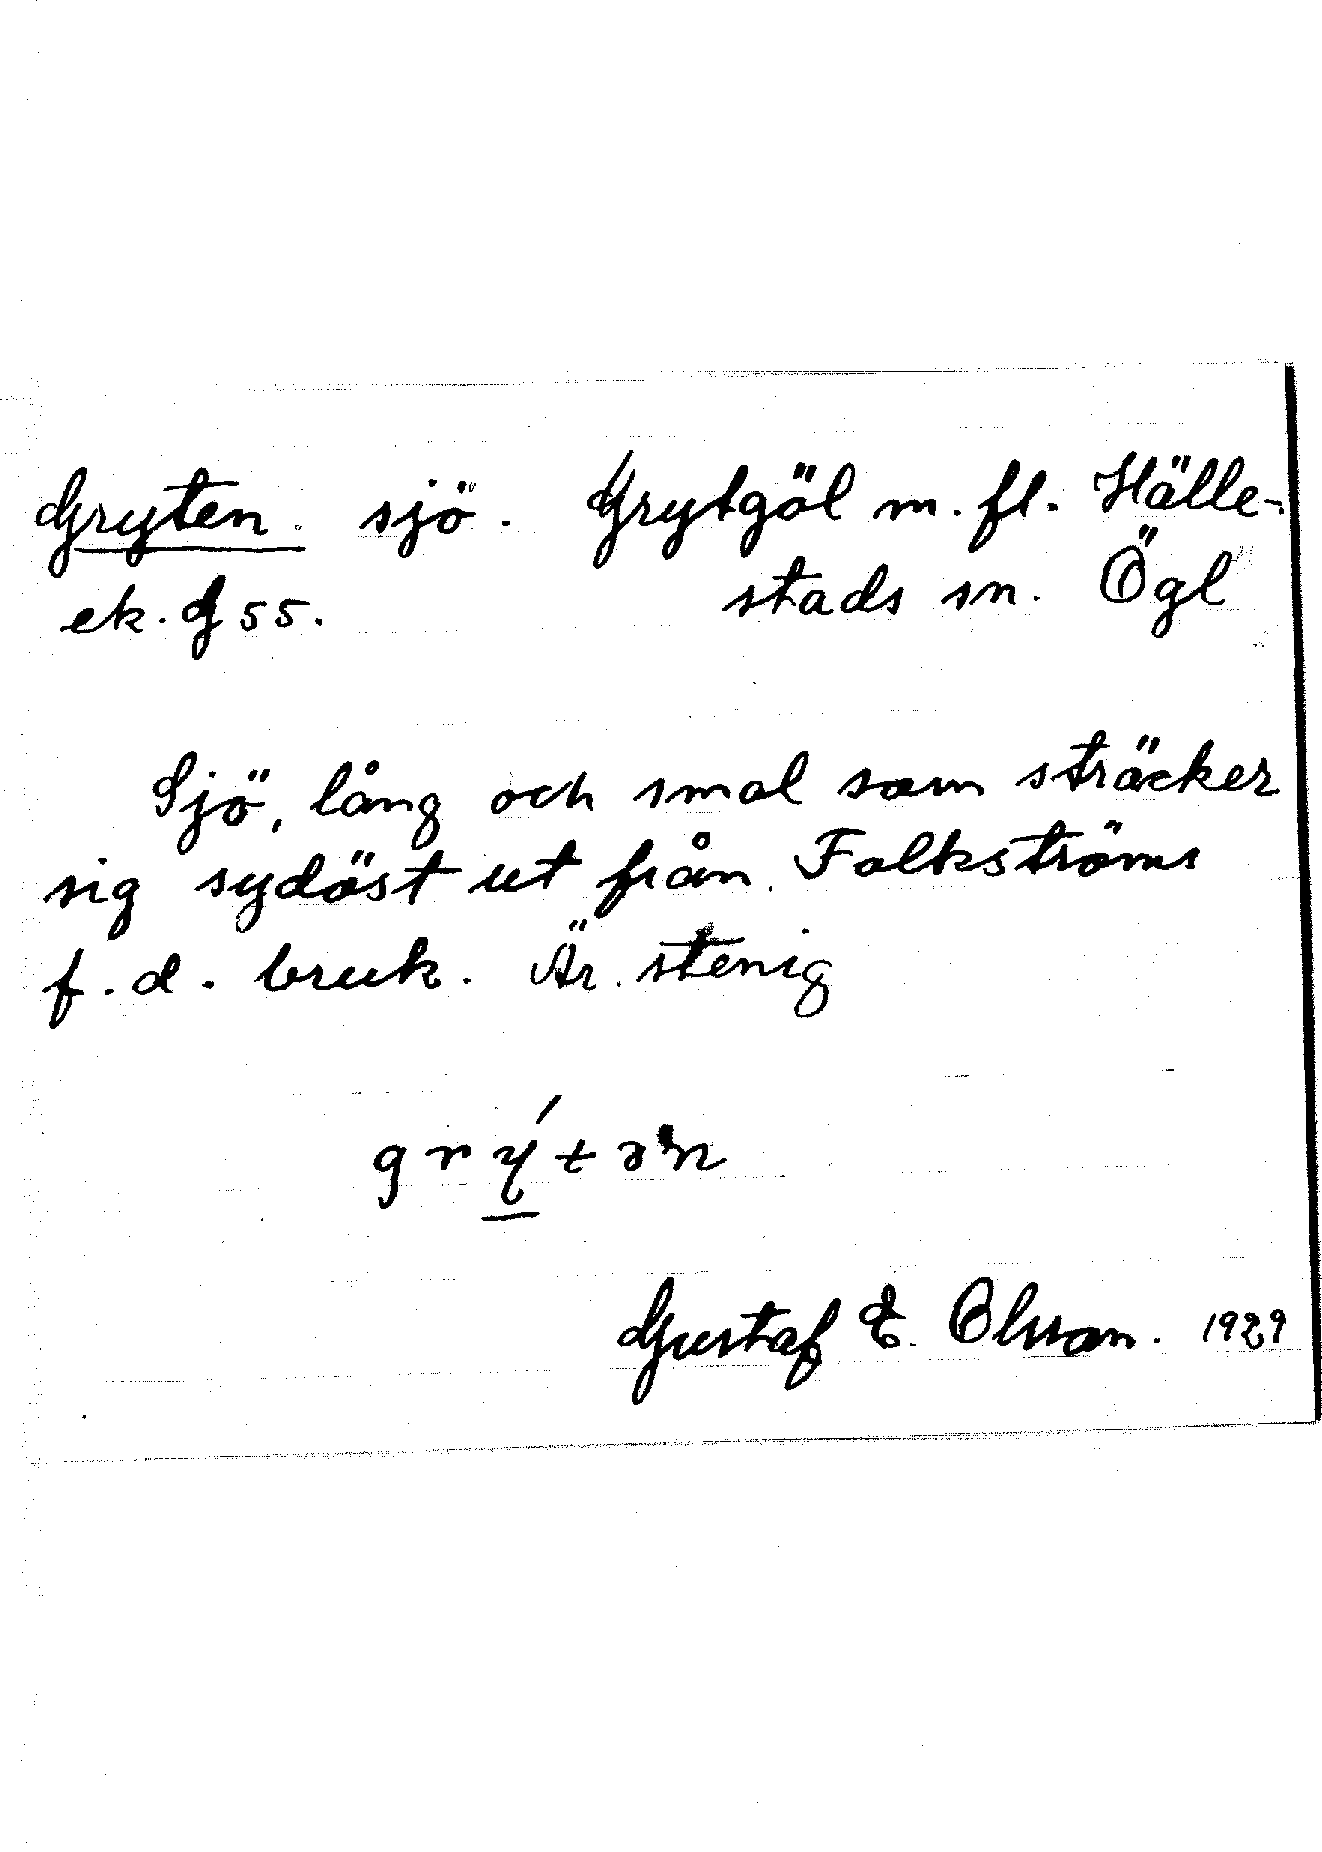 Gryten. sjö. Grytgöl m. fl. Hälle-
ek. G 55. stads sn. Ögl
Sjö, lång och smal som sträcker
sig sydöst ut från Folkströms
f. d. bruk. Är stenig
grý̲tən
Gustaf E. Olsson. 1929